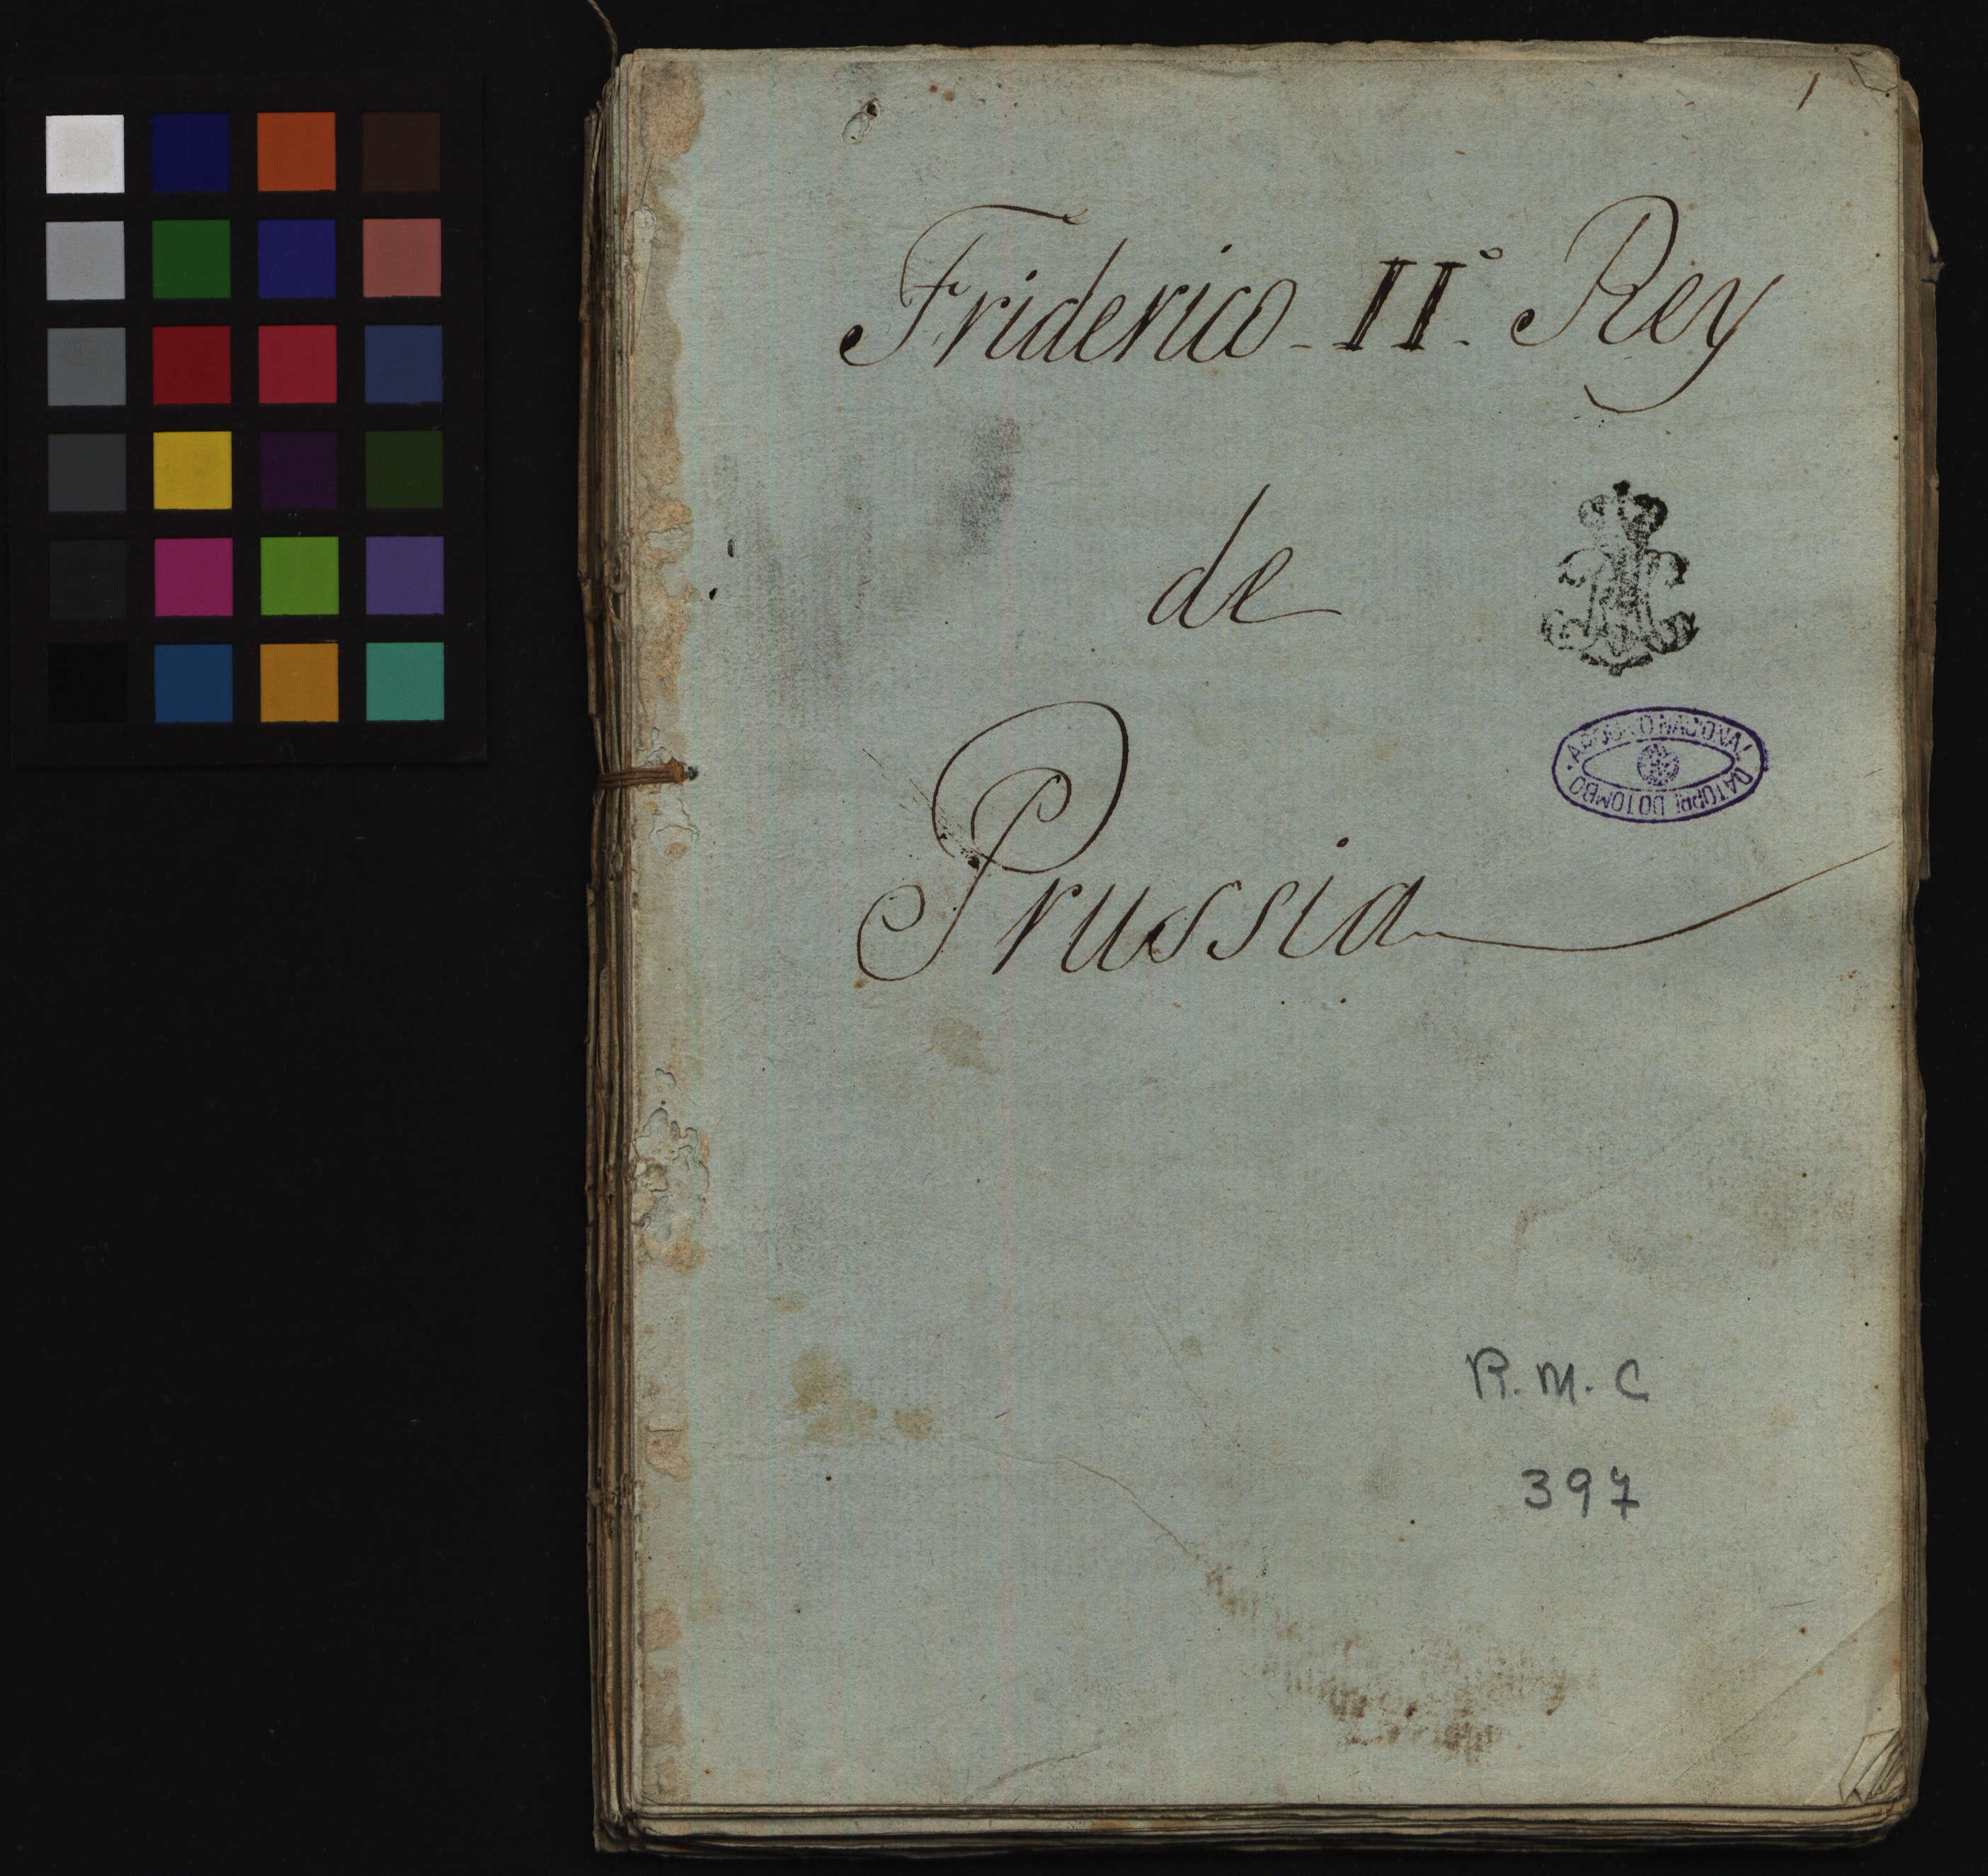 1
Friderico - II.º Rey
de
Prussia
ARQUIVO NACIONAL
DA TORRE DO TOMBO
R. M. C
397